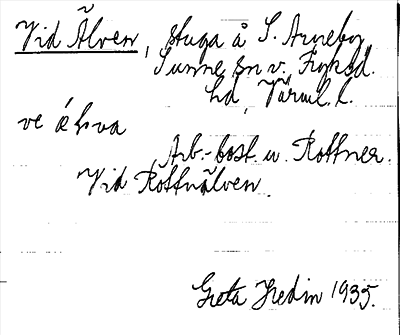 Vid Älven, stuga å S. Arneby
Sunne sn v. Fryksd.
hd, Värml. l.
ve
Arb.-bost. u. Rottner.
Vid Rottnälven.
Greta Hedin 1935.